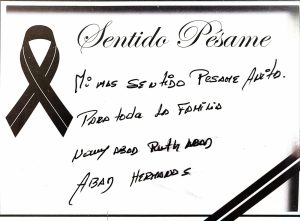 Sentido Pésame
Mi mas SENTIDO PESAME Anito.
PARA toda LA FAMILIA
Nancy ABAD Ruth ABAD
ABAD HERMANOS